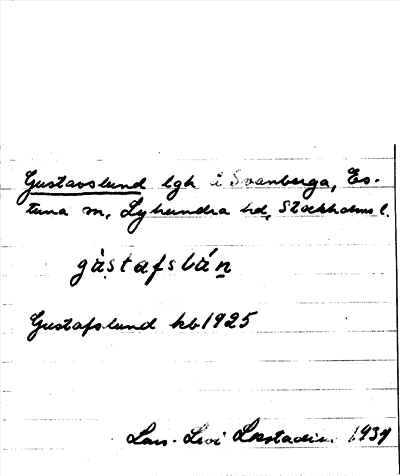 Gustavslund lgh i Svanberga, Es-
tuna sn, Lyhundra hd, Stockholms l.
gàstafslán
Gustafslund kb 1925
Lars-Levi Læstadius 1937